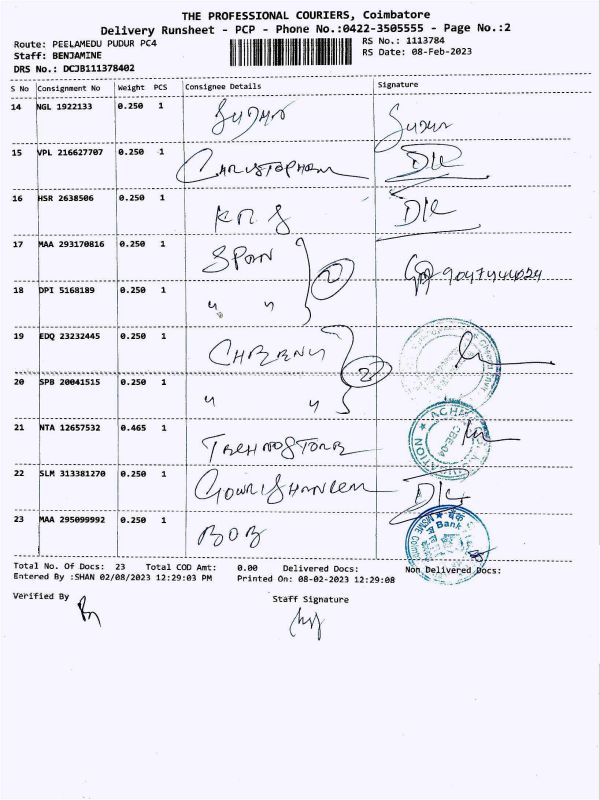 THE PROFESSIONAL COURIERS, Coimbatore
Delivery Runsheet - PCP - Phone No.:0422-3505555 - Page No.:2
Route: PEELAMEDU PUDUR PC4
RS No.: 1113784
Staff: BENJAMINE
RS Date: 08-Feb-2023
DRS No.: DCJB111378402
S No Consignment No Weight PCS Consignee Details Signature
14 NGL 1922133 0.250 1
15 VPL 216627707 0.250 1 CHRISTOPHER
16 HSR 2638506 0.250 1
17 MAA 293170816 0.250 1 SPAN 2 9047444024
18 DPI 5168189 0.250 1 " "
19 EDQ 23232445 0.250 1 2
20 SPB 20041515 0.250 1 " "
21 NTA 12657532 0.465 1 TECHNOSTORE
22 SLM 313381270 0.250 1
23 MAA 295099992 0.250 1 BOB
Total No. Of Docs: 23 Total COD Amt: 0.00 Delivered Docs: Non Delivered Docs:
Entered By :SHAN 02/08/2023 12:29:03 PM Printed On: 08-02-2023 12:29:08
Verified By
Staff Signature